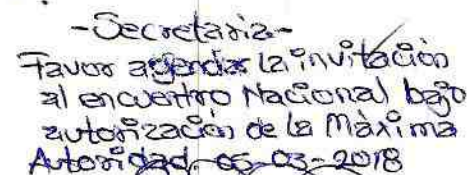 -Secretaria-
Favor agendar la invitación
al encuentro Nacional bajo
autorización de la Màxima
Autoridad. 05-03-2018